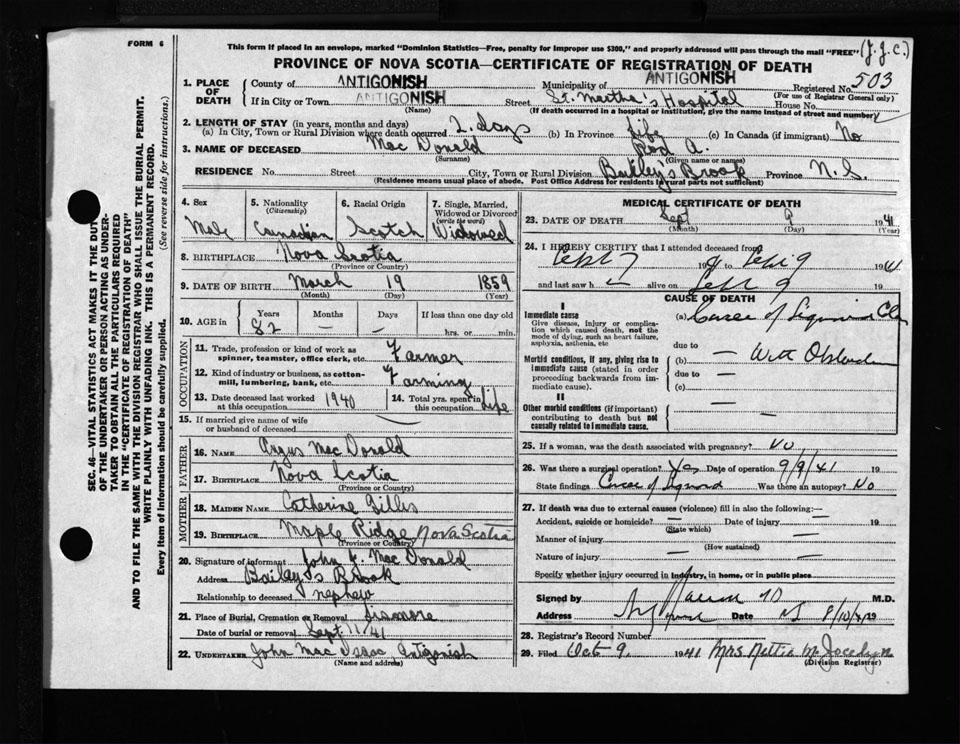 FORM 6
This form if placed in an envelope, marked "Dominion Statistics—Free, penalty for improper use $300," and properly addressed will pass through the mail "FREE" (J.J.C.)
PROVINCE OF NOVA SCOTIA—CERTIFICATE OF REGISTRATION OF DEATH
1. PLACE OF DEATH County of ANTIGONISH Municipality of ANTIGONISH Registered No. 503
(For use of Registrar General only)
If in City or Town ANTIGONISH Street St. Martha's Hospital House No.
(Name) (If death occurred in a hospital or institution, give the name instead of street and number)
2. LENGTH OF STAY (in years, months and days)
(a) In City, Town or Rural Division where death occurred 2 days (b) In Province life (c) In Canada (if immigrant) No
3. NAME OF DECEASED Mac Donald Rod A.
(Surname) (Given name or names)
RESIDENCE No. Street City, Town or Rural Division Bailey's Brook Province N.S.
(Residence means usual place of abode. Post Office Address for residents in rural parts not sufficient)
4. Sex Male
5. Nationality (Citizenship) Canadian
6. Racial Origin Scotch
7. Single, Married, Widowed or Divorced (write the word) Widowed
8. BIRTHPLACE Nova Scotia
(Province or Country)
9. DATE OF BIRTH March 19 1859
(Month) (Day) (Year)
10. AGE in Years Months Days If less than one day old
82 — — hrs. or min.
OCCUPATION
11. Trade, profession or kind of work as spinner, teamster, office clerk, etc. Farmer
12. Kind of industry or business, as cotton-mill, lumbering, bank, etc. Farming
13. Date deceased last worked at this occupation 1940
14. Total yrs. spent in this occupation Life
15. If married give name of wife or husband of deceased —
FATHER
16. NAME Angus Mac Donald
17. BIRTHPLACE Nova Scotia
(Province or Country)
MOTHER
18. MAIDEN NAME Catherine Gillis
19. BIRTHPLACE Maple Ridge Nova Scotia
(Province or Country)
20. Signature of informant John J. Mac Donald
Address Bailey's Brook
Relationship to deceased nephew
21. Place of Burial, Cremation or Removal Lismore
Date of burial or removal Sept 11/41
22. UNDERTAKER John Mac Isaac Antigonish
(Name and address)
MEDICAL CERTIFICATE OF DEATH
23. DATE OF DEATH Sept 9 1941
(Month) (Day) (Year)
24. I HEREBY CERTIFY that I attended deceased from
Sept 7 to Sept 9 1941
and last saw h alive on Sept 9 19
CAUSE OF DEATH
I
Immediate cause
Give disease, injury or complication which caused death, not the mode of dying, such as heart failure, asphyxia, asthenia, etc
(a) Cancer of Sigmoid
due to
Morbid conditions, if any, giving rise to immediate cause (stated in order proceeding backwards from immediate cause).
(b) — With
due to —
(c)
II
Other morbid conditions (if important) contributing to death but not causally related to immediate cause.
25. If a woman, was the death associated with pregnancy? No
26. Was there a surgical operation? Yes Date of operation 9/9/41 19
State findings Cancer of Sigmoid Was there an autopsy? No
27. If death was due to external causes (violence) fill in also the following:—
Accident, suicide or homicide? — Date of injury — 19
(State which)
Manner of injury —
(How sustained)
Nature of injury —
Specify whether injury occurred in industry, in home, or in public place
Signed by M.D.
Address Date 19
28. Registrar's Record Number
29. Filed Oct 9 1941 Mrs Nettie M. Jocelyn
(Division Registrar)
SEC. 46—VITAL STATISTICS ACT MAKES IT THE DUTY
OF THE UNDERTAKER OR PERSON ACTING AS UNDER-
TAKER TO OBTAIN ALL THE PARTICULARS REQUIRED
IN THE "CERTIFICATE OF REGISTRATION OF DEATH"
AND TO FILE THE SAME WITH THE DIVISION REGISTRAR WHO SHALL ISSUE THE BURIAL PERMIT.
WRITE PLAINLY WITH UNFADING INK. THIS IS A PERMANENT RECORD.
Every item of information should be carefully supplied. (See reverse side for instructions.)